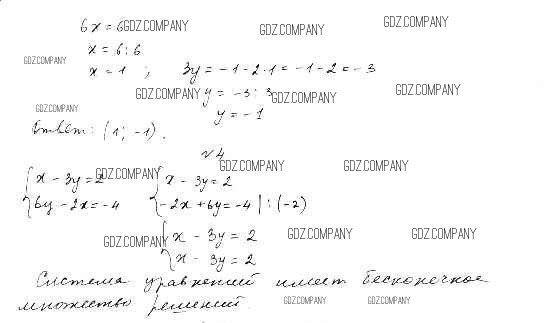 6x = 6 GDZ.COMPANY GDZ.COMPANY GDZ.COMPANY
x = 6 : 6
GDZ.COMPANY x = 1 ; 3y = -1 - 2·1 = -1 - 2 = -3
GDZ.COMPANY y = -3 : 3 GDZ.COMPANY GDZ.COMPANY
GDZ.COMPANY y = -1
Ответ: (1; -1).
№4
{ x - 3y = 2 GDZ.COMPANY { x - 3y = 2 GDZ.COMPANY GDZ.COMPANY
{ 6y - 2x = -4 { -2x + 6y = -4 | : (-2)
GDZ.COMPANY { x - 3y = 2 GDZ.COMPANY GDZ.COMPANY
{ x - 3y = 2
Система уравнений имеет бесконечное
множество решений. GDZ.COMPANY GDZ.COMPANY